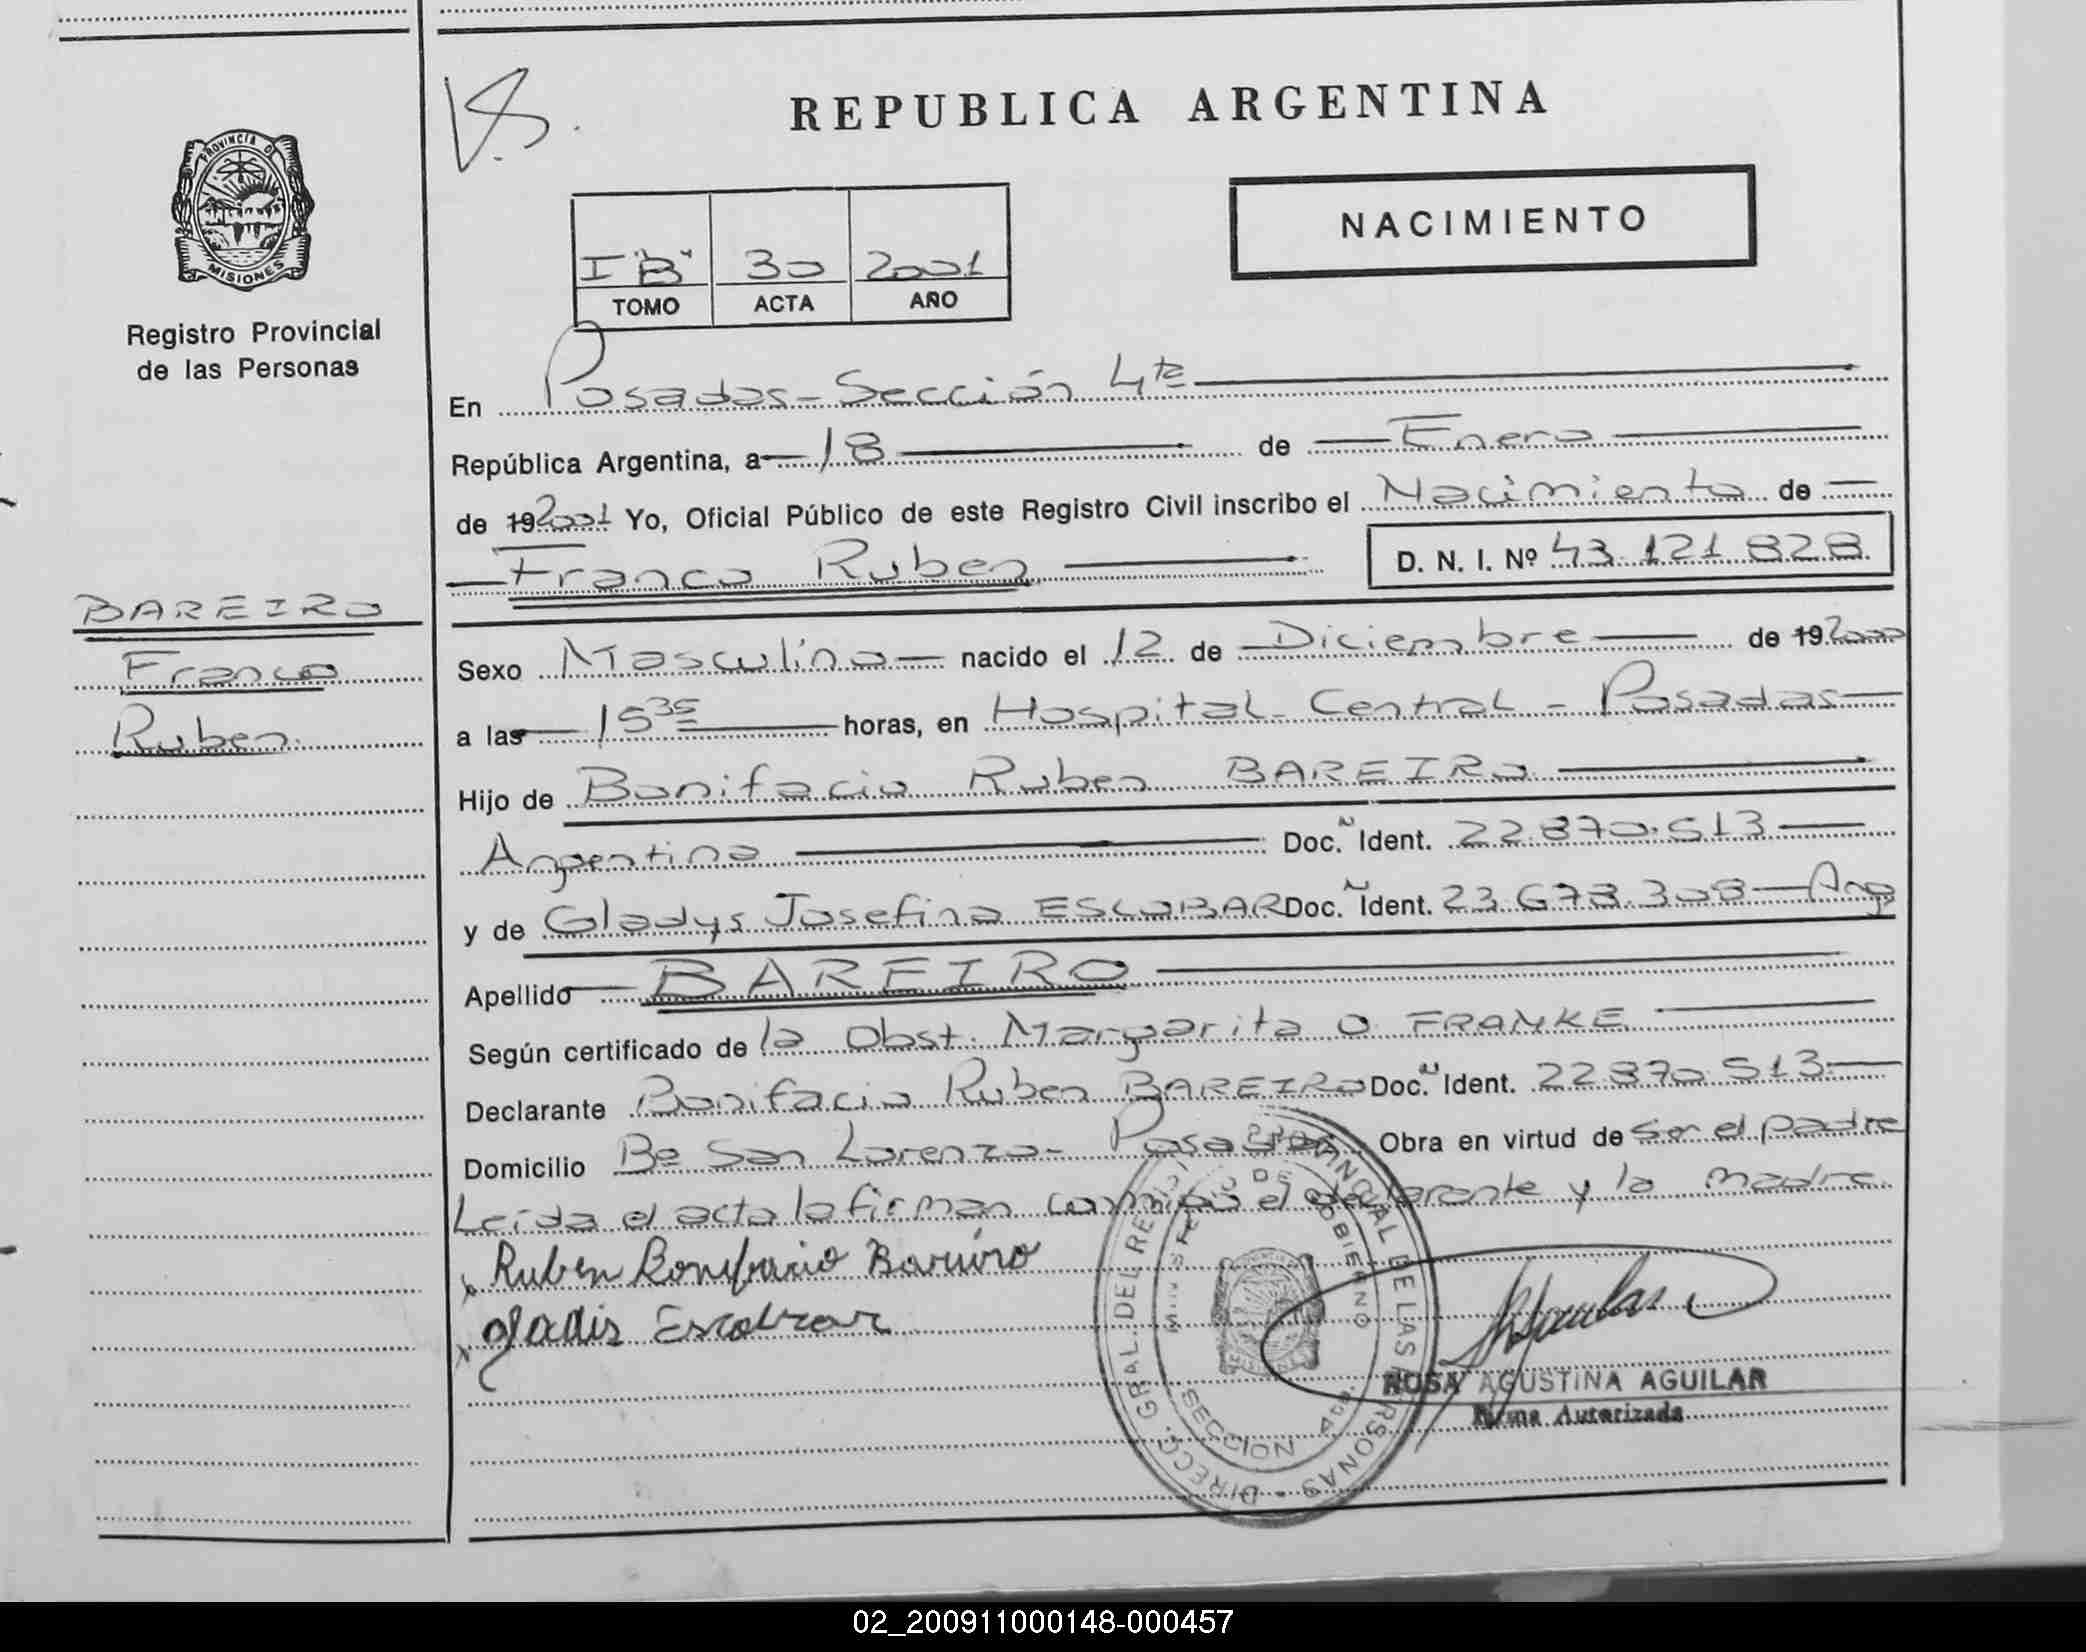 REPUBLICA ARGENTINA
NACIMIENTO
I "B" 30 2001
TOMO ACTA AÑO
PROVINCIA D
MISIONES
Registro Provincial
de las Personas
BAREIRO
Franco
Ruben
En Posadas - Sección 4ta
República Argentina, a 18 de Enero
de 19 2001 Yo, Oficial Público de este Registro Civil inscribo el Nacimiento de
Franco Ruben D. N. I. Nº 43.121.828
Sexo Masculino nacido el 12 de Diciembre de 19 2000
a las 15 35 horas, en Hospital Central - Posadas
Hijo de Bonifacio Ruben BAREIRO
Argentino Doc. N Ident. 22.870.513
y de Gladys Josefina ESCOBAR Doc. N Ident. 23.673.308 Arg
Apellido BAREIRO
Según certificado de la Obst. Margarita O FRANKE
Declarante Bonifacio Ruben BAREIRO Doc. N Ident. 22.870.513
Domicilio Bº San Lorenzo - Posadas Obra en virtud de ser el padre
Leída el acta la firman conmigo el declarante y la madre.
x Ruben Bonifacio Bareiro
x Gladis Escobar
DIRECC. GRAL. DEL REG. PROVINCIAL DE LAS PERSONAS
MINISTERIO DE GOBIERNO
SECCION 4ta.
ROSA AGUSTINA AGUILAR
Firma Autorizada
02_200911000148-000457